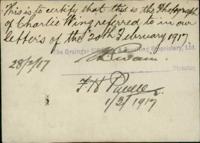 This is to certify that this is the Photograph
of Charlie Wing referred to in our
letters of the 20th February 1917
The Grainger
Proprietary, Ltd.
28/2/17
Director
1/3/1917